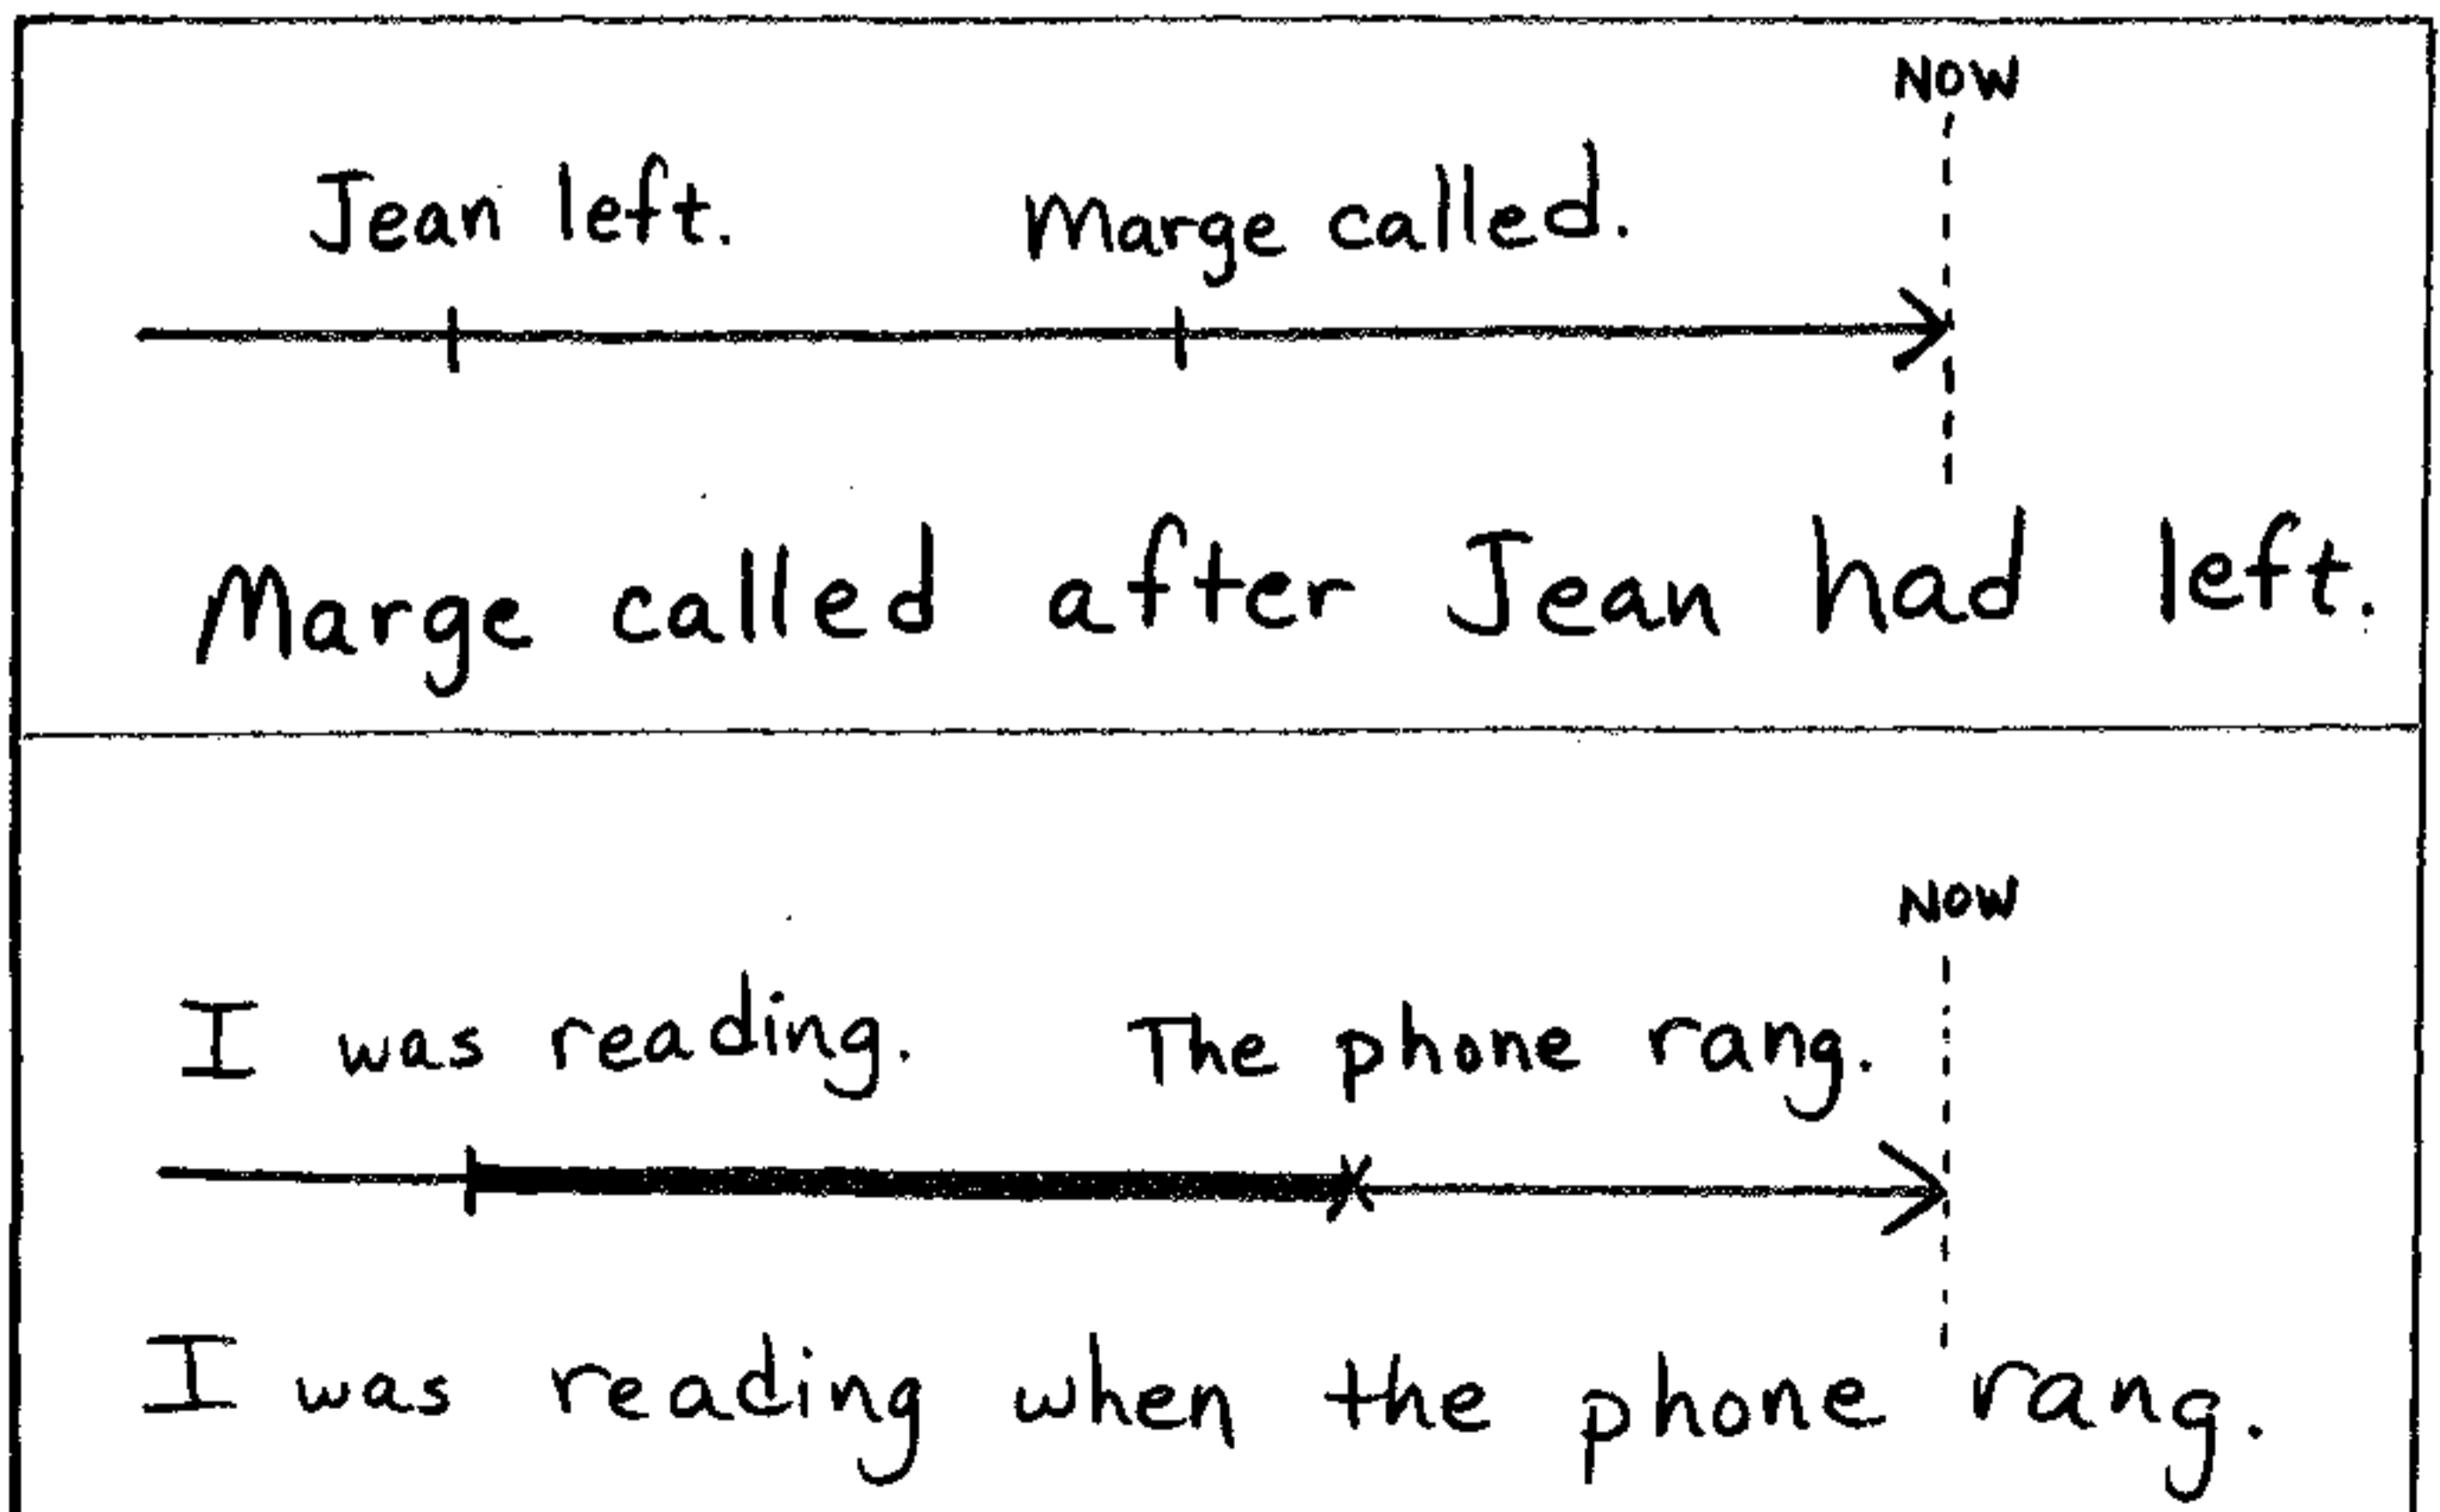 NOW
Jean left. Marge called.
Marge called after Jean had left.
NOW
I was reading. The phone rang.
I was reading when the phone rang.